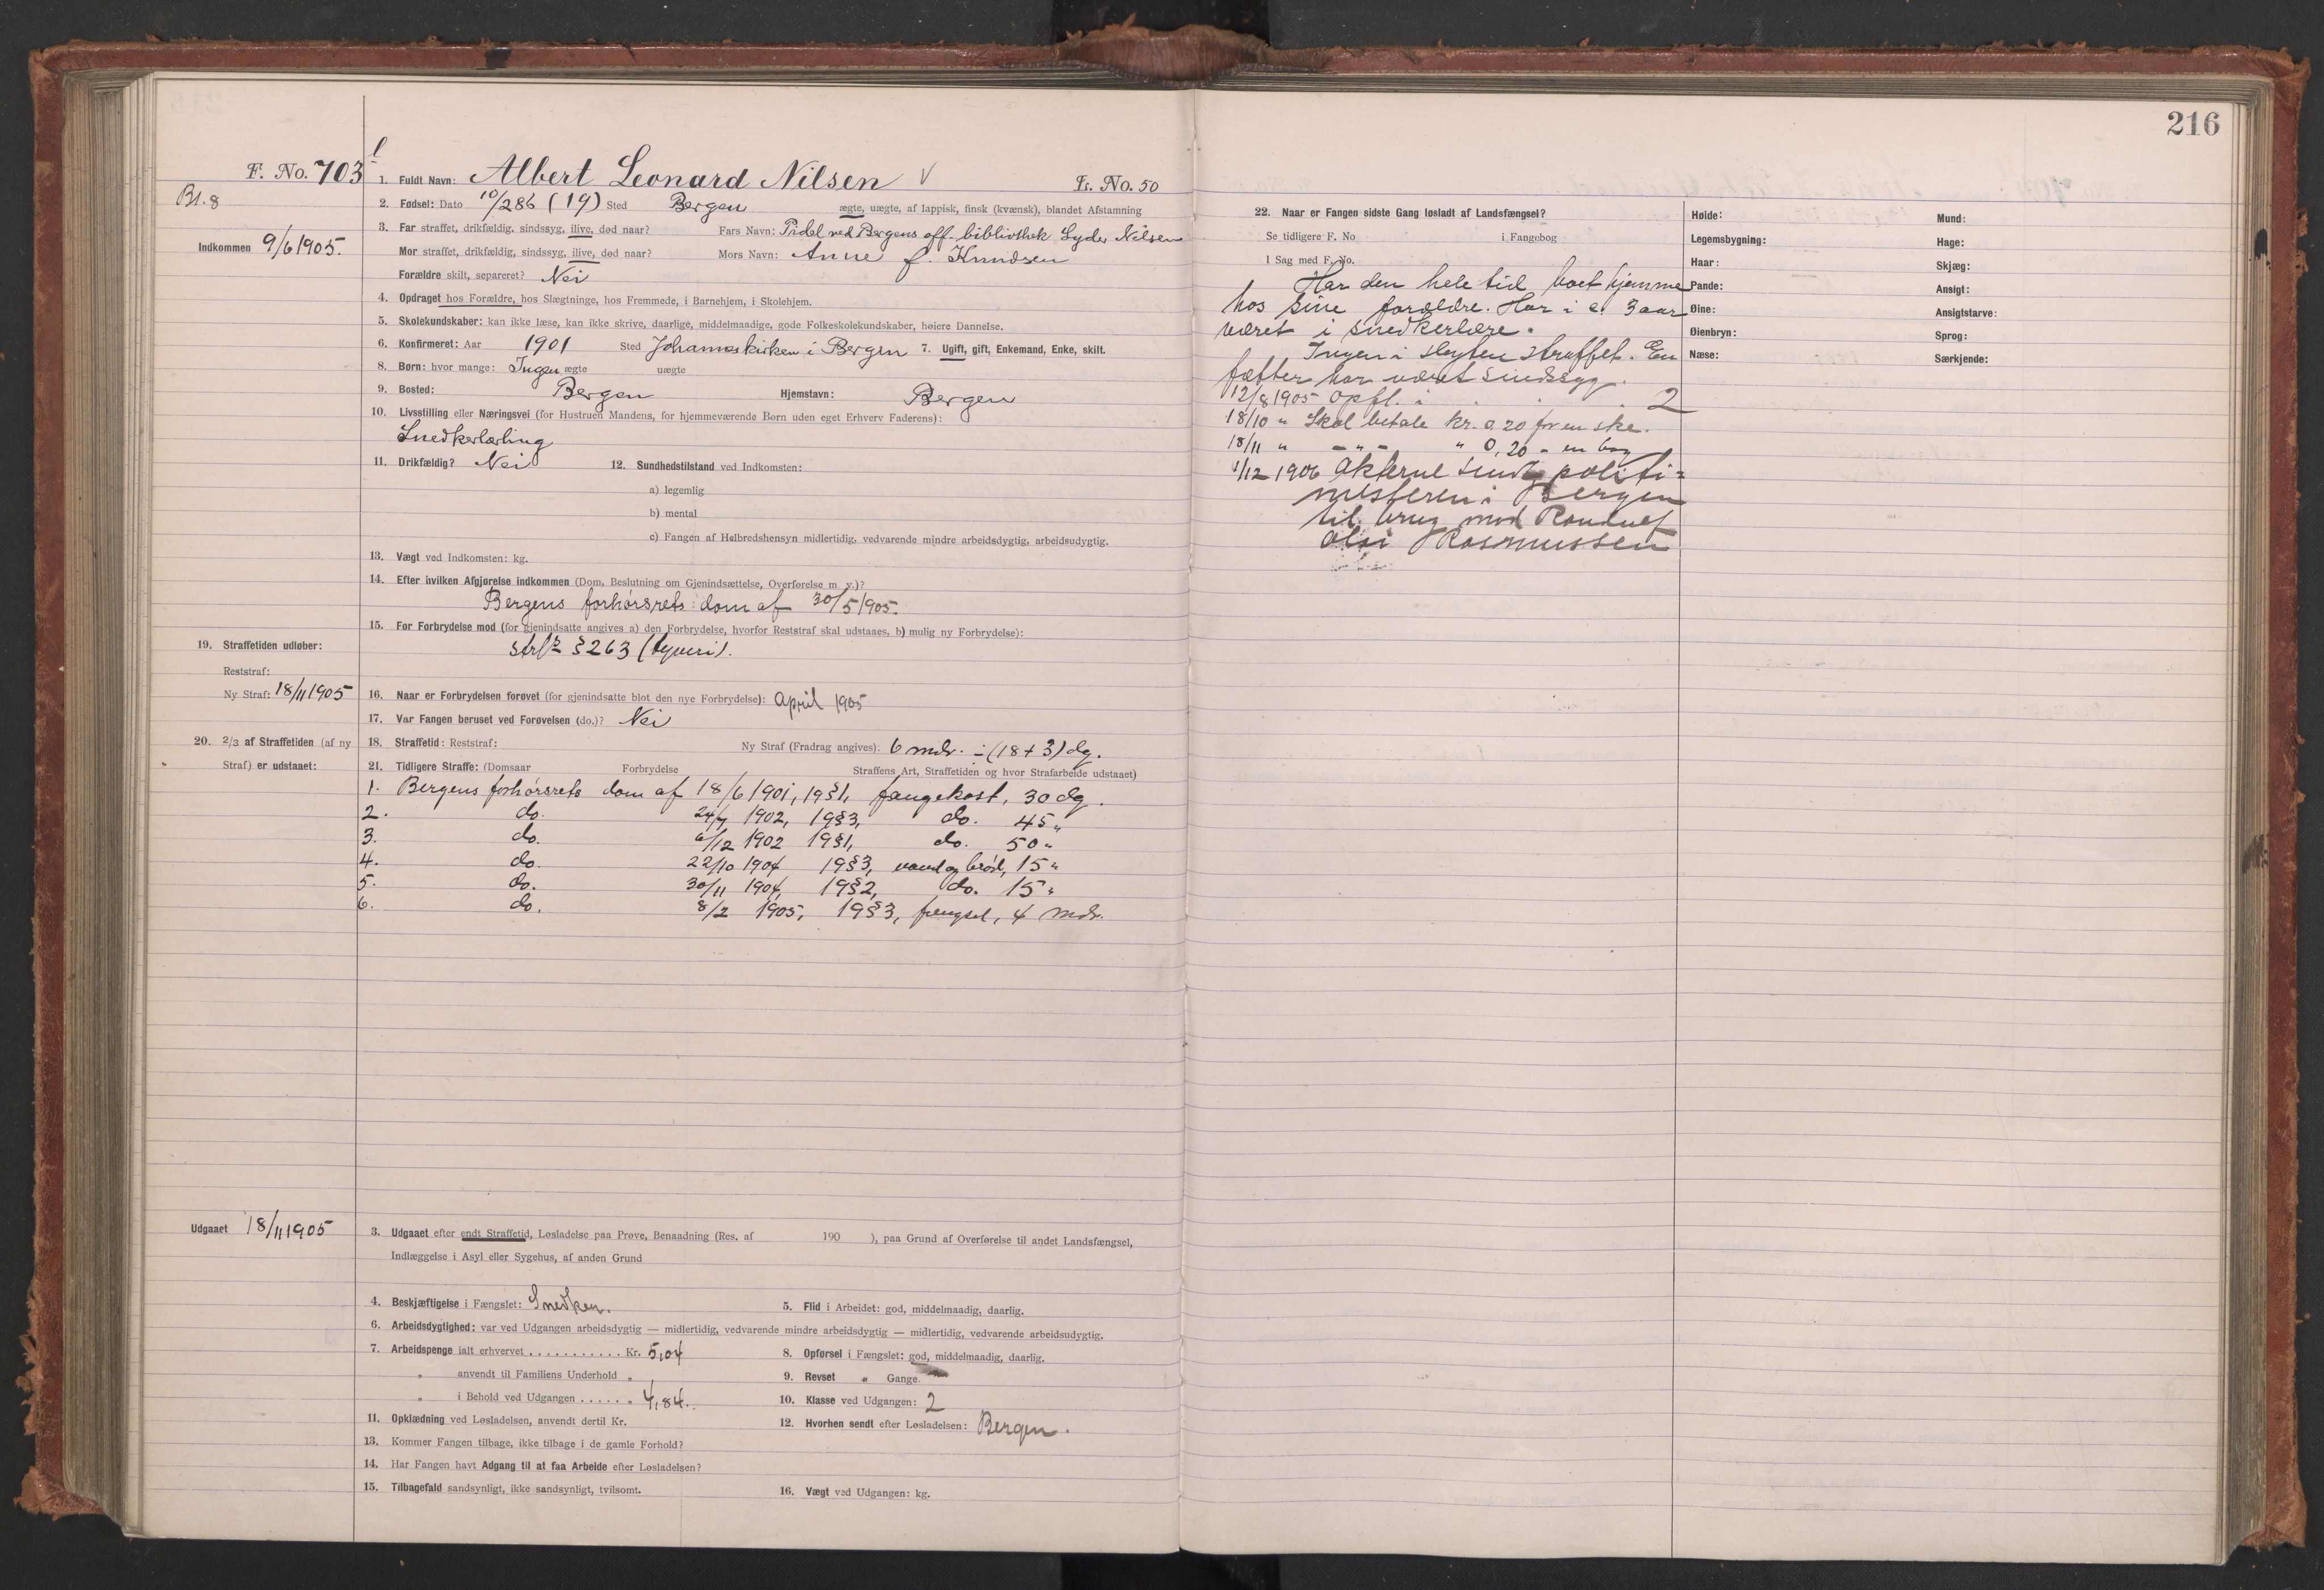 216
F. No. 703
1. Fuldt Navn: Albert Leonard Nilsen
L. No. 50
Bl. 8
2. Fødsel: Dato 10/2 86 (19) Sted Bergen ægte, uægte, af lappisk, finsk (kvænsk), blandet Afstamning
Indkommen 9/6 1905.
3. Far straffet, drikfældig, sindssyg, ilive, død naar? Fars Navn: Pedel ved Bergens off. bibliothek Lyder Nilsen
Mor straffet, drikfældig, sindssyg, ilive, død naar? Mors Navn: Anne f. Knudsen
Forældre skilt, separeret? Nei
4. Opdraget hos Forældre, hos Slægtninge, hos Fremmede, i Barnehjem, i Skolehjem.
5. Skolekundskaber: kan ikke læse, kan ikke skrive, daarlige, middelmaadige, gode Folkeskolekundskaber, høiere Dannelse.
6. Konfirmeret: Aar 1901 Sted Johanneskirken i Bergen 7. Ugift, gift, Enkemand, Enke, skilt.
8. Børn: hvor mange: Ingen ægte uægte
9. Bosted: Bergen Hjemstavn: Bergen
10. Livsstilling eller Næringsvei (for Hustruen Mandens, for hjemmeværende Børn uden eget Erhverv Faderens):
Snedkerlærling
11. Drikfældig? Nei 12. Sundhedstilstand ved Indkomsten:
a) legemlig
b) mental
c) Fangen af Helbredshensyn midlertidig, vedvarende mindre arbeidsdygtig, arbeidsudygtig.
13. Vægt ved Indkomsten: kg.
14. Efter hvilken Afgjørelse indkommen (Dom, Beslutning om Gjenindsættelse, Overførelse m. v.)?
Bergens forhørsrets dom af 30/5 1905.
15. For Forbrydelse mod (for gjenindsatte angives a) den Forbrydelse, hvorfor Reststraf skal udstaaes, b) mulig ny Forbrydelse):
strl § 263 (tyveri).
19. Straffetiden udløber:
Reststraf:
Ny Straf: 18/11 1905
16. Naar er Forbrydelsen forøvet (for gjenindsatte blot den nye Forbrydelse): April 1905
17. Var Fangen beruset ved Forøvelsen (do.)? Nei
20. 2/3 af Straffetiden (af ny
Straf) er udstaaet:
18. Straffetid: Reststraf: Ny Straf (Fradrag angives): 6 mdr. ÷ (18 + 3) dg.
21. Tidligere Straffe: (Domsaar Forbrydelse Straffens Art, Straffetiden og hvor Strafarbeide udstaaet)
1. Bergens forhørsrets dom af 18/6 1901, 19§1, fangekost, 30 dg.
2. do. 24/7 1902, 19§3, do. 45 "
3. do. 6/12 1902 19§1, do. 50 "
4. do. 22/10 1904 19§3, vand og brød, 15 "
5. do. 30/11 1904, 19§2, do. 15 "
6. do. 8/2 1905, 19§3, fængsel, 4 mdr.
Udgaaet 18/11 1905
3. Udgaaet efter endt Straffetid, Løsladelse paa Prøve, Benaadning (Res. af 190 ), paa Grund af Overførelse til andet Landsfængsel,
Indlæggelse i Asyl eller Sygehus, af anden Grund
4. Beskjæftigelse i Fængslet: Snedker. 5. Flid i Arbeidet: god, middelmaadig, daarlig.
6. Arbeidsdygtighed: var ved Udgangen arbeidsdygtig — midlertidig, vedvarende mindre arbeidsdygtig — midlertidig, vedvarende arbeidsudygtig.
7. Arbeidspenge ialt erhvervet . . . . . . . . . . . Kr. 5,04 8. Opførsel i Fængslet: god, middelmaadig, daarlig.
" anvendt til Familiens Underhold " 9. Revset " Gange.
" i Behold ved Udgangen . . . . . " 4,84. 10. Klasse ved Udgangen: 2
11. Opklædning ved Løsladelsen, anvendt dertil Kr. 12. Hvorhen sendt efter Løsladelsen: Bergen.
13. Kommer Fangen tilbage, ikke tilbage i de gamle Forhold?
14. Har Fangen havt Adgang til at faa Arbeide efter Løsladelsen?
15. Tilbagefald sandsynligt, ikke sandsynligt, tvilsomt. 16. Vægt ved Udgangen: kg.
22. Naar er Fangen sidste Gang løsladt af Landsfængsel?
Se tidligere F. No i Fangebog
I Sag med F. No.
Har den hele tid boet hjemme
hos sine forældre. Har i c. 3 aar
været i snedkerlære.
Ingen i slegten straffet. En
fætter har været sindssyg.
12/8 1905 Opfl. i . . . 2
18/10 " Skal betale kr. 0.20 for en ske.
18/11 " - " - " 0,20 - en bog
1/12 1906 Akterne sendt politi=
mesteren i Bergen
til brug mod
Rasmussen
Høide:
Legemsbygning:
Haar:
Pande:
Øine:
Øienbryn:
Næse:
Mund:
Hage:
Skjæg:
Ansigt:
Ansigtstarve:
Sprog:
Særkjende: